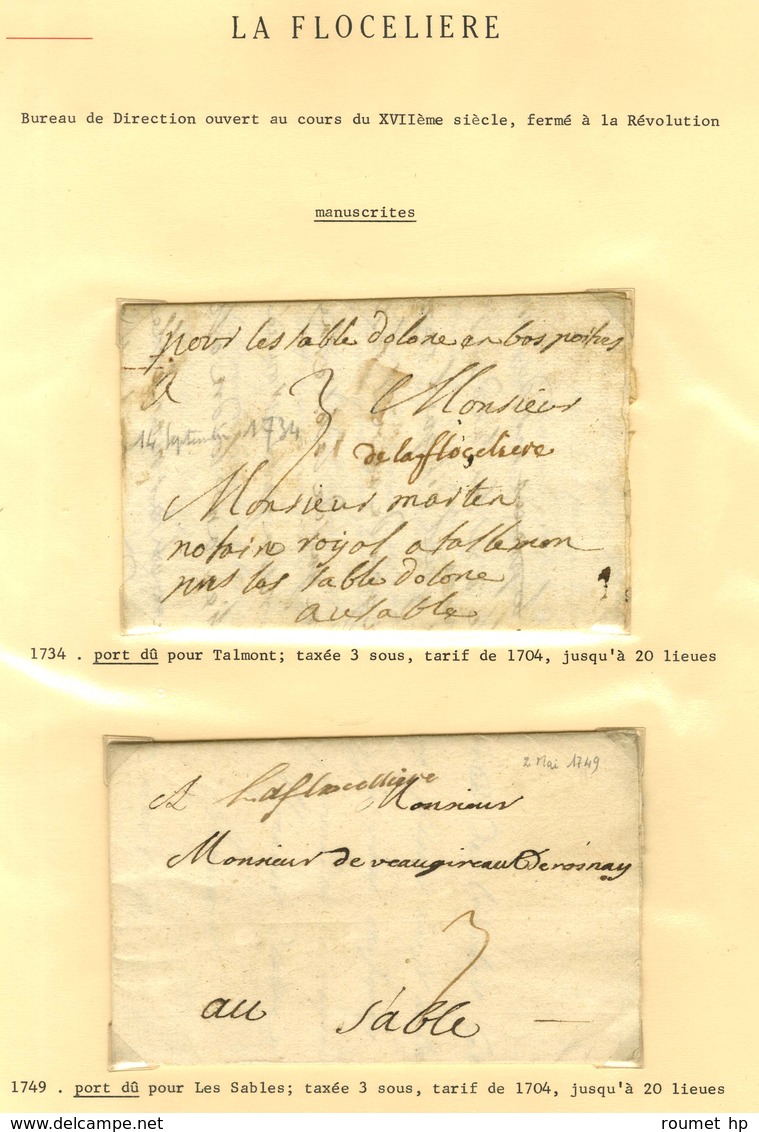 LA FLOCELIERE
Bureau de Direction ouvert au cours du XVIIème siècle, fermé à la Révolution
manuscrites
pour les sable dolone en bas poitou
A 3 Monsieur
14 septembre 1734
de lafloceliere
Monsieur marten
notaire royal a tallemon
les sable dolone
au sable
1734 . port dû pour Talmont; taxée 3 sous, tarif de 1704, jusqu'à 20 lieues
2 Mai 1749
A Laflocelliere Monsieur
Monsieur de veaugireau Derosnay
3
au sable
1749 . port dû pour Les Sables; taxée 3 sous, tarif de 1704, jusqu'à 20 lieues
roumet hp